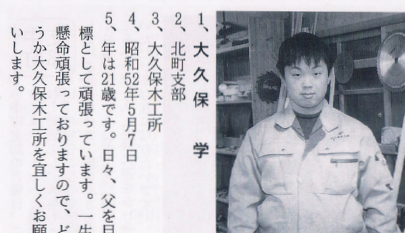 1、大久保　学
2、北町支部
3、大久保木工所
4、昭和52年5月7日
5、年は21歳です。日々、父を目
標として頑張っています。一生
懸命頑張っておりますので、ど
うか大久保木工所を宜しくお願
いします。